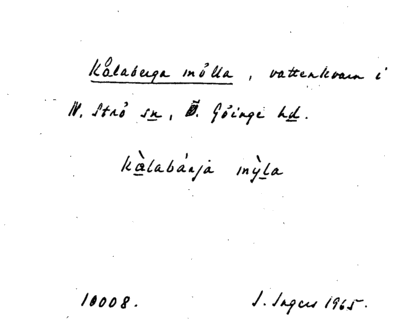 Kålaberga mölla, vattenkvarn i
N. Strö sn, Ö. Göinge hd.
kàlabárja mỳla
10008. I. Ingers 1965.